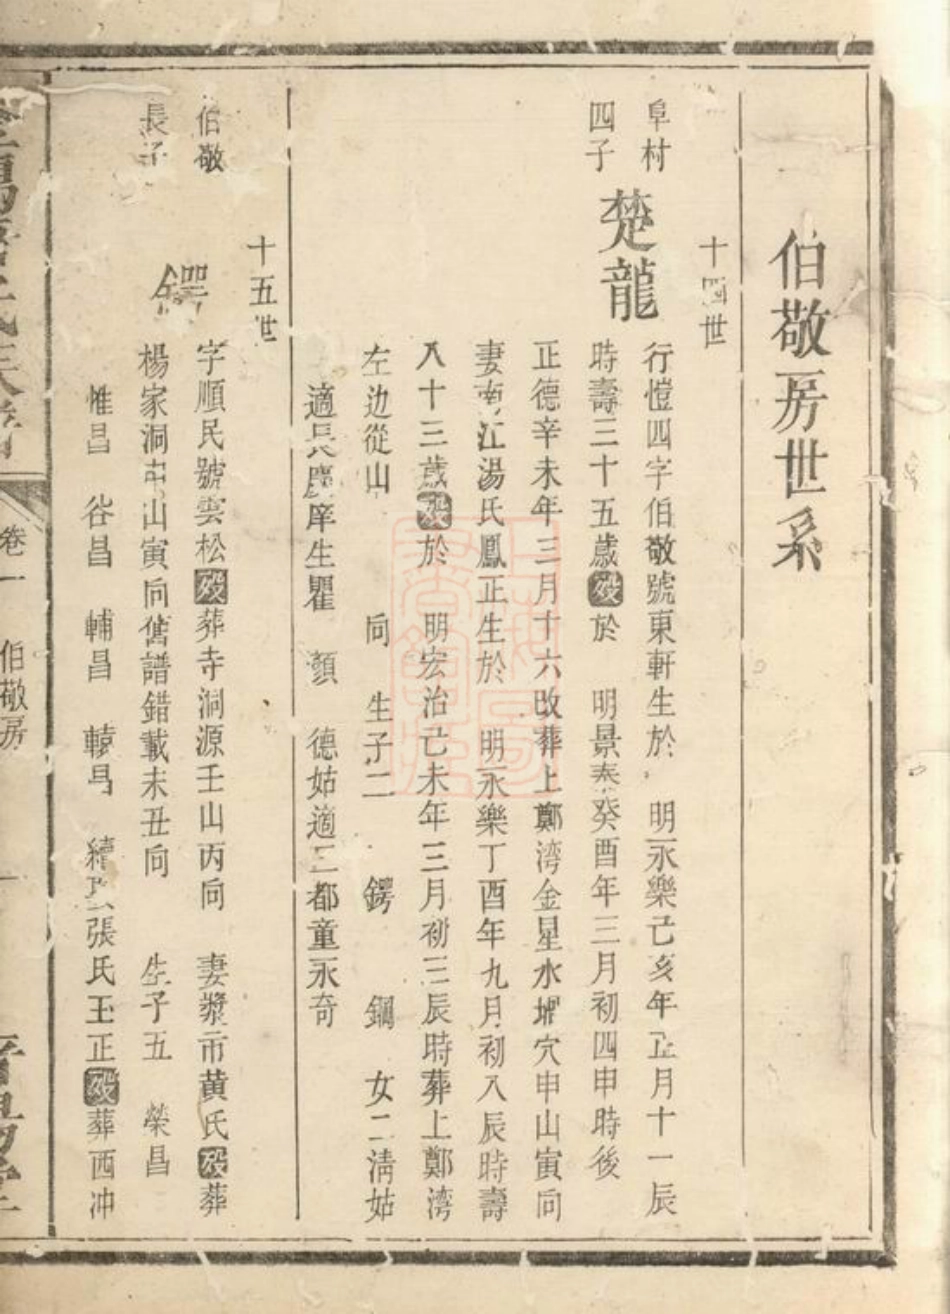 伯敬房世系
十四世
阜村
四子
楚龍
行愷四字伯敬號東軒生於 明永樂己亥年正月十一辰
時壽三十五歲歿於 明景泰癸酉年三月初四申時後
正德辛未年三月十六改葬上鄭湾金星水 穴申山寅向
妻南江湯氏鳳正生於 明永樂丁酉年九月初八辰時壽
八十三歲歿於 明宏治己未年三月初三辰時葬上鄭湾
左边從山 向 生子二 鍔 鋼 女二淸姑
適長慶庠生瞿 顏 德姑適三都童永奇
十五世
伯敬
長子
鍔
字順民號雲松歿葬寺洞源壬山丙向 妻漿市黄氏歿葬
楊家洞 山寅向舊譜錯載未丑向 生子五 榮昌
惟昌 谷昌 輔昌 轅昌 續 張氏玉正歿葬西冲
卷一 伯敬房
一